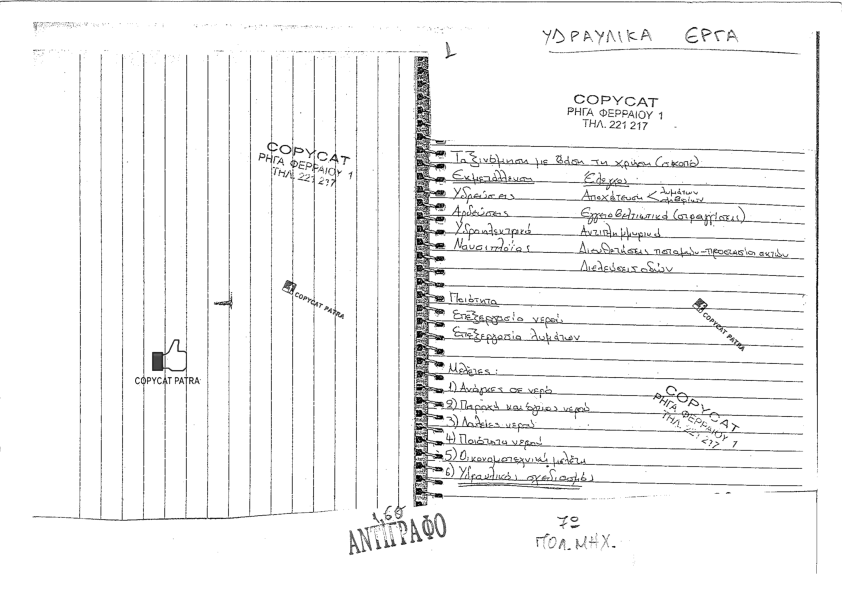 ΥΔΡΑΥΛΙΚΑ ΕΡΓΑ
1
COPYCAT
ΡΗΓΑ ΦΕΡΡΑΙΟΥ 1
ΤΗΛ. 221 217
COPYCAT
ΡΗΓΑ ΦΕΡΡΑΙΟΥ 1
ΤΗΛ. 221 217
Ταξινόμηση με βάση τη χρήση (σκοπό)
Εκμετάλλευση Έλεγχος
Υδρεύσεις Αποχέτευση < λυμάτων ομβρίων
Αρδεύσεις Εγγειοβελτιωτικά (στραγγίσεις)
Υδροηλεκτρικά Αντιπλημμυρικά
Ναυσιπλοΐας Διευθετήσεις ποταμών-προστασία ακτών
Διελεύσεις οδών
Ποιότητα
Επεξεργασία νερού
Επεξεργασία λυμάτων
Μελέτες:
1) Ανάγκες σε νερό
2) Παροχή και όγκος νερού
3)
νερού
4) Ποιότητα νερού
5) Οικονομοτεχνική μελέτη
6) Υδραυλικός σχεδιασμός
COPYCAT PATRA
COPYCAT PATRA
COPYCAT PATRA
COPYCAT
ΡΗΓΑ ΦΕΡΡΑΙΟΥ 1
ΤΗΛ. 221 217
1,60
ΑΝΤΙΓΡΑΦΟ
7º
ΠΟΛ. ΜΗΧ.